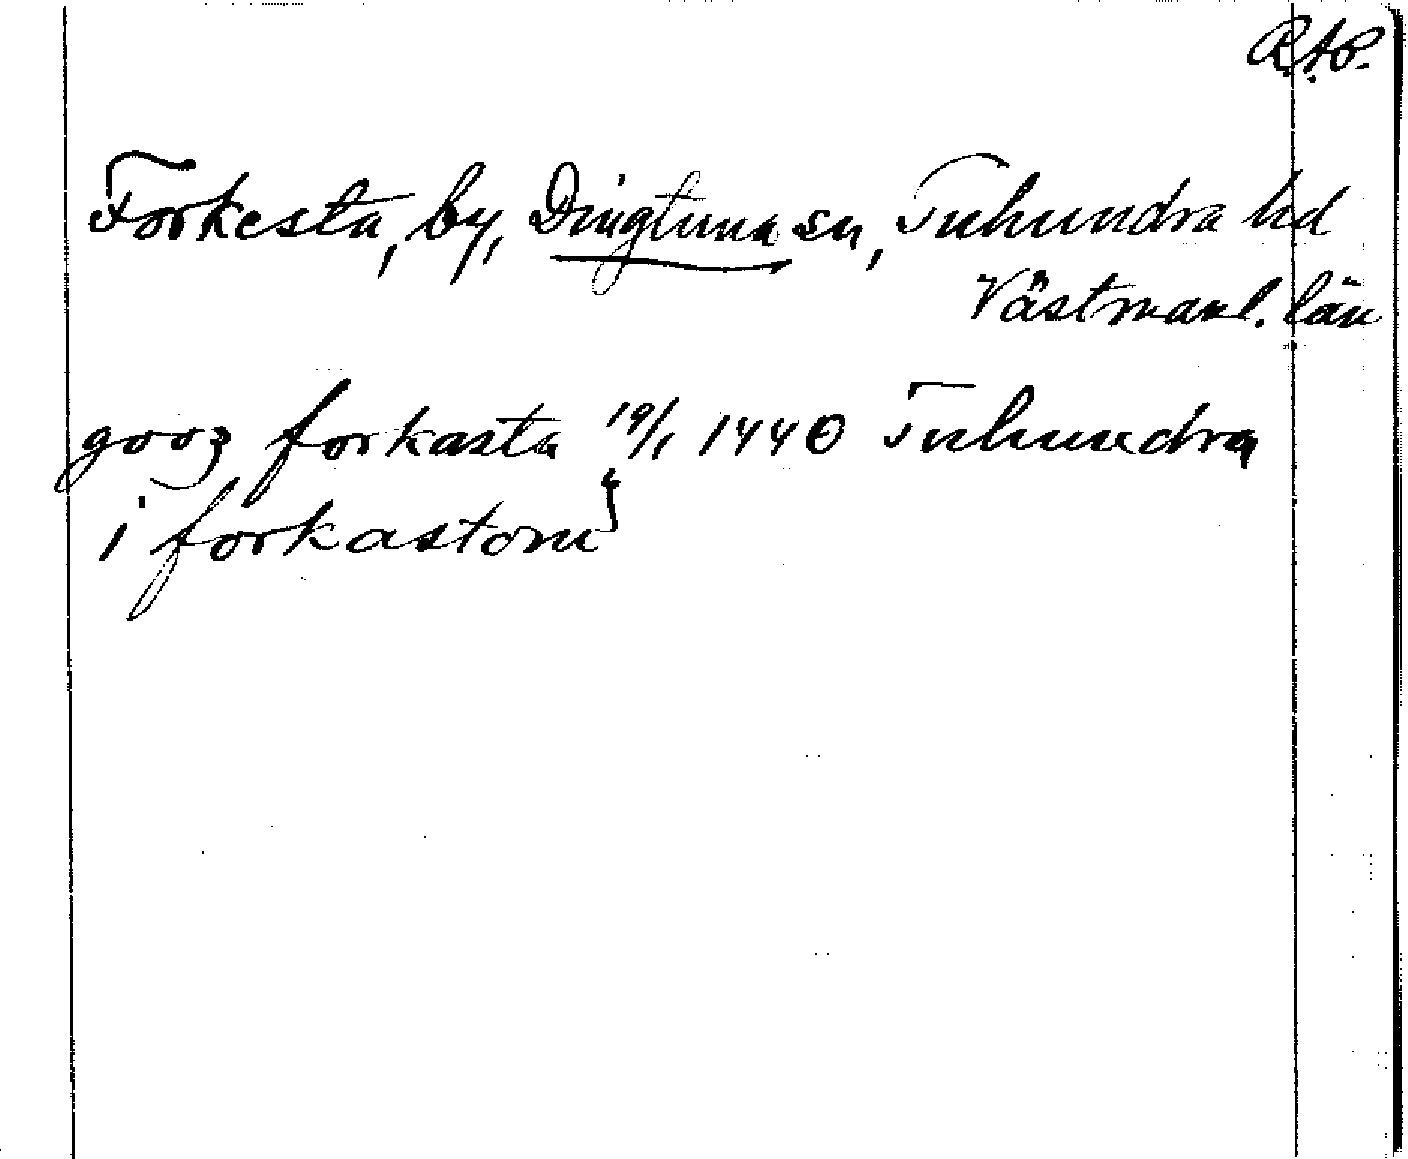 R.A.P.
Forkesta, by, Dingtuna sn, Tuhundra hd
Västmanl. län
gooz forkasta 19/1 1440 Tuhundra
i forkastom